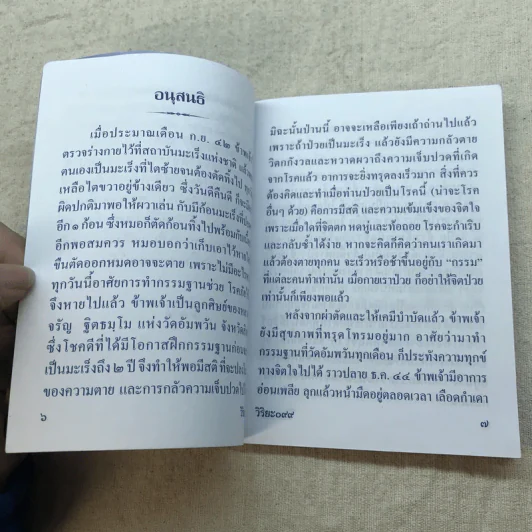 อนุสนธิ
เมื่อประมาณเดือน ก.ย. ๔๒ ข้าพ
ตรวจร่างกายไว้ที่สถาบันมะเร็งแห่งชาติ แล้ว
ตนเองเป็นมะเร็งที่ไตซ้ายจนต้องตัดทิ้งไป
เหลือไตขวาอยู่ข้างเดียว ซึ่งวันดีคืนดี ก็
ผิดปกติมาพอให้ผวาเล่น กับมีก้อนมะเร็งที่
อีก ๑ ก้อน ซึ่งหมอก็ตัดก้อนทิ้งไปพร้อมกัน
อีกพอสมควร หมอบอกว่าเก็บเอาไว้
ขืนตัดออกหมดอาจจะตาย เพราะไม่มี
ทุกวันนี้อาศัยการทำกรรมฐานช่วย โรค
จึงหายไปแล้ว ข้าพเจ้าเป็นลูกศิษย์ของ
จรัญ ฐิตธมฺโม แห่งวัดอัมพวัน จังหวัด
ซึ่งโชคดีที่ได้มีโอกาสฝึกกรรมฐานก่อน
เป็นมะเร็งถึง ๒ ปี จึงทำให้พอมีสติที่จะ
ของความตาย และการกลัวความเจ็บปวด
๖
วิริยะ๐๙๙
มิฉะนั้นป่านนี้ อาจจะเหลือเพียงเถ้าถ่านไปแล้ว
เพราะถ้าป่วยเป็นมะเร็ง แล้วยังมีความกลัวตาย
วิตกกังวลและหวาดผวาถึงความเจ็บปวดที่เกิด
จากโรคแล้ว อาการจะยิ่งทรุดลงเร็วมาก สิ่งที่ควร
ต้องคิดและทำเมื่อท่านป่วยเป็นโรคนี้ (น่าจะโรค
อื่นๆ ด้วย) คือการมีสติ และความเข้มแข็งของจิตใจ
เพราะเมื่อใดที่จิตตก หดหู่และท้อถอย โรคจะกำเริบ
และกลับซ้ำได้ง่าย หากจะคิดก็คิดว่าคนเราเกิดมา
แล้วต้องตายทุกคน จะเร็วหรือช้าขึ้นอยู่กับ “กรรม”
ที่แต่ละคนทำเท่านั้น เมื่อกายเราป่วย ก็อย่าให้จิตป่วย
เท่านั้นก็เพียงพอแล้ว
หลังจากผ่าตัดและให้เคมีบำบัดแล้ว ข้าพเจ้า
ยังมีสุขภาพที่ทรุดโทรมอยู่มาก อาศัยว่ามาทำ
กรรมฐานที่วัดอัมพวันทุกเดือน ก็ประทังความทุกข์
ทางจิตใจไปได้ ราวปลาย ธ.ค. ๔๔ ข้าพเจ้ามีอาการ
อ่อนเพลีย ลุกแล้วหน้ามืดอยู่ตลอดเวลา เลือดกำเดา
๗